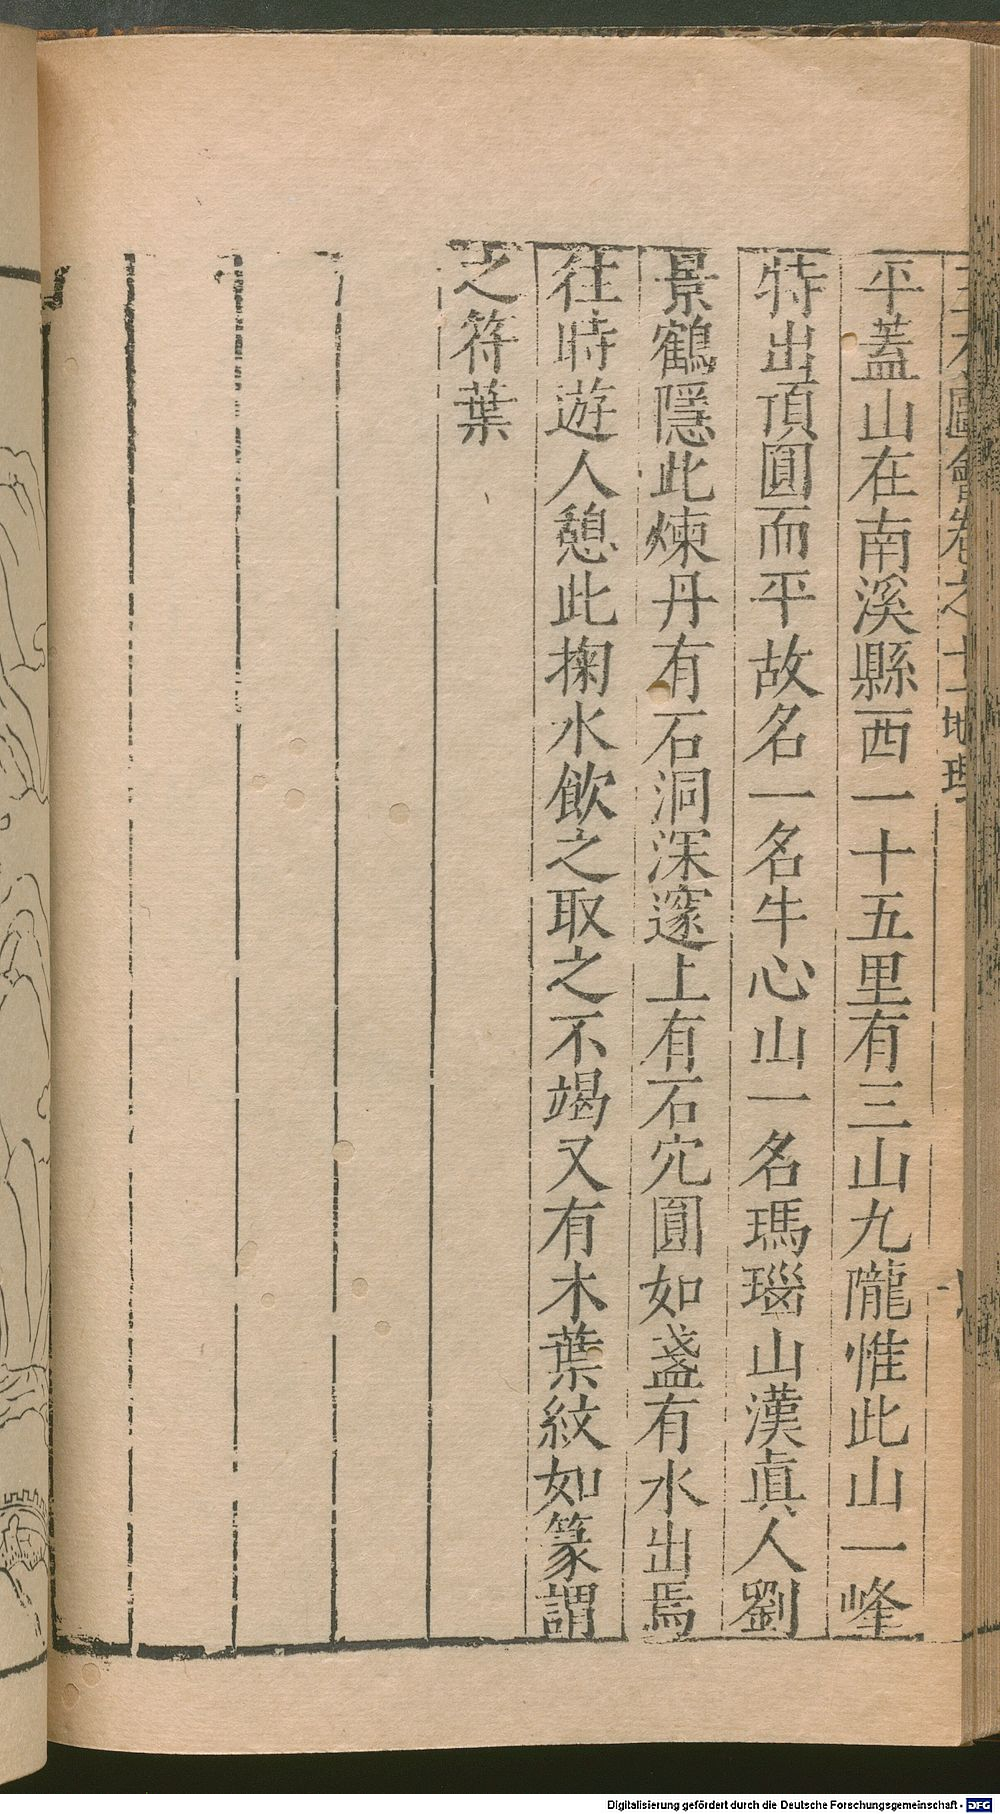 三才圖會卷之十一 地理
平蓋山在南溪縣西一十五里有三山九隴惟此山一峰
特出頂圓而平故名一名牛心山一名瑪瑙山漢眞人劉
景鶴隱此煉丹有石洞深邃上有石穴圓如盞有水出焉
往時遊人憩此掬水飲之取之不竭又有木葉紋如篆謂
之符葉
Digitalisierung gefördert durch die Deutsche Forschungsgemeinschaft - DFG